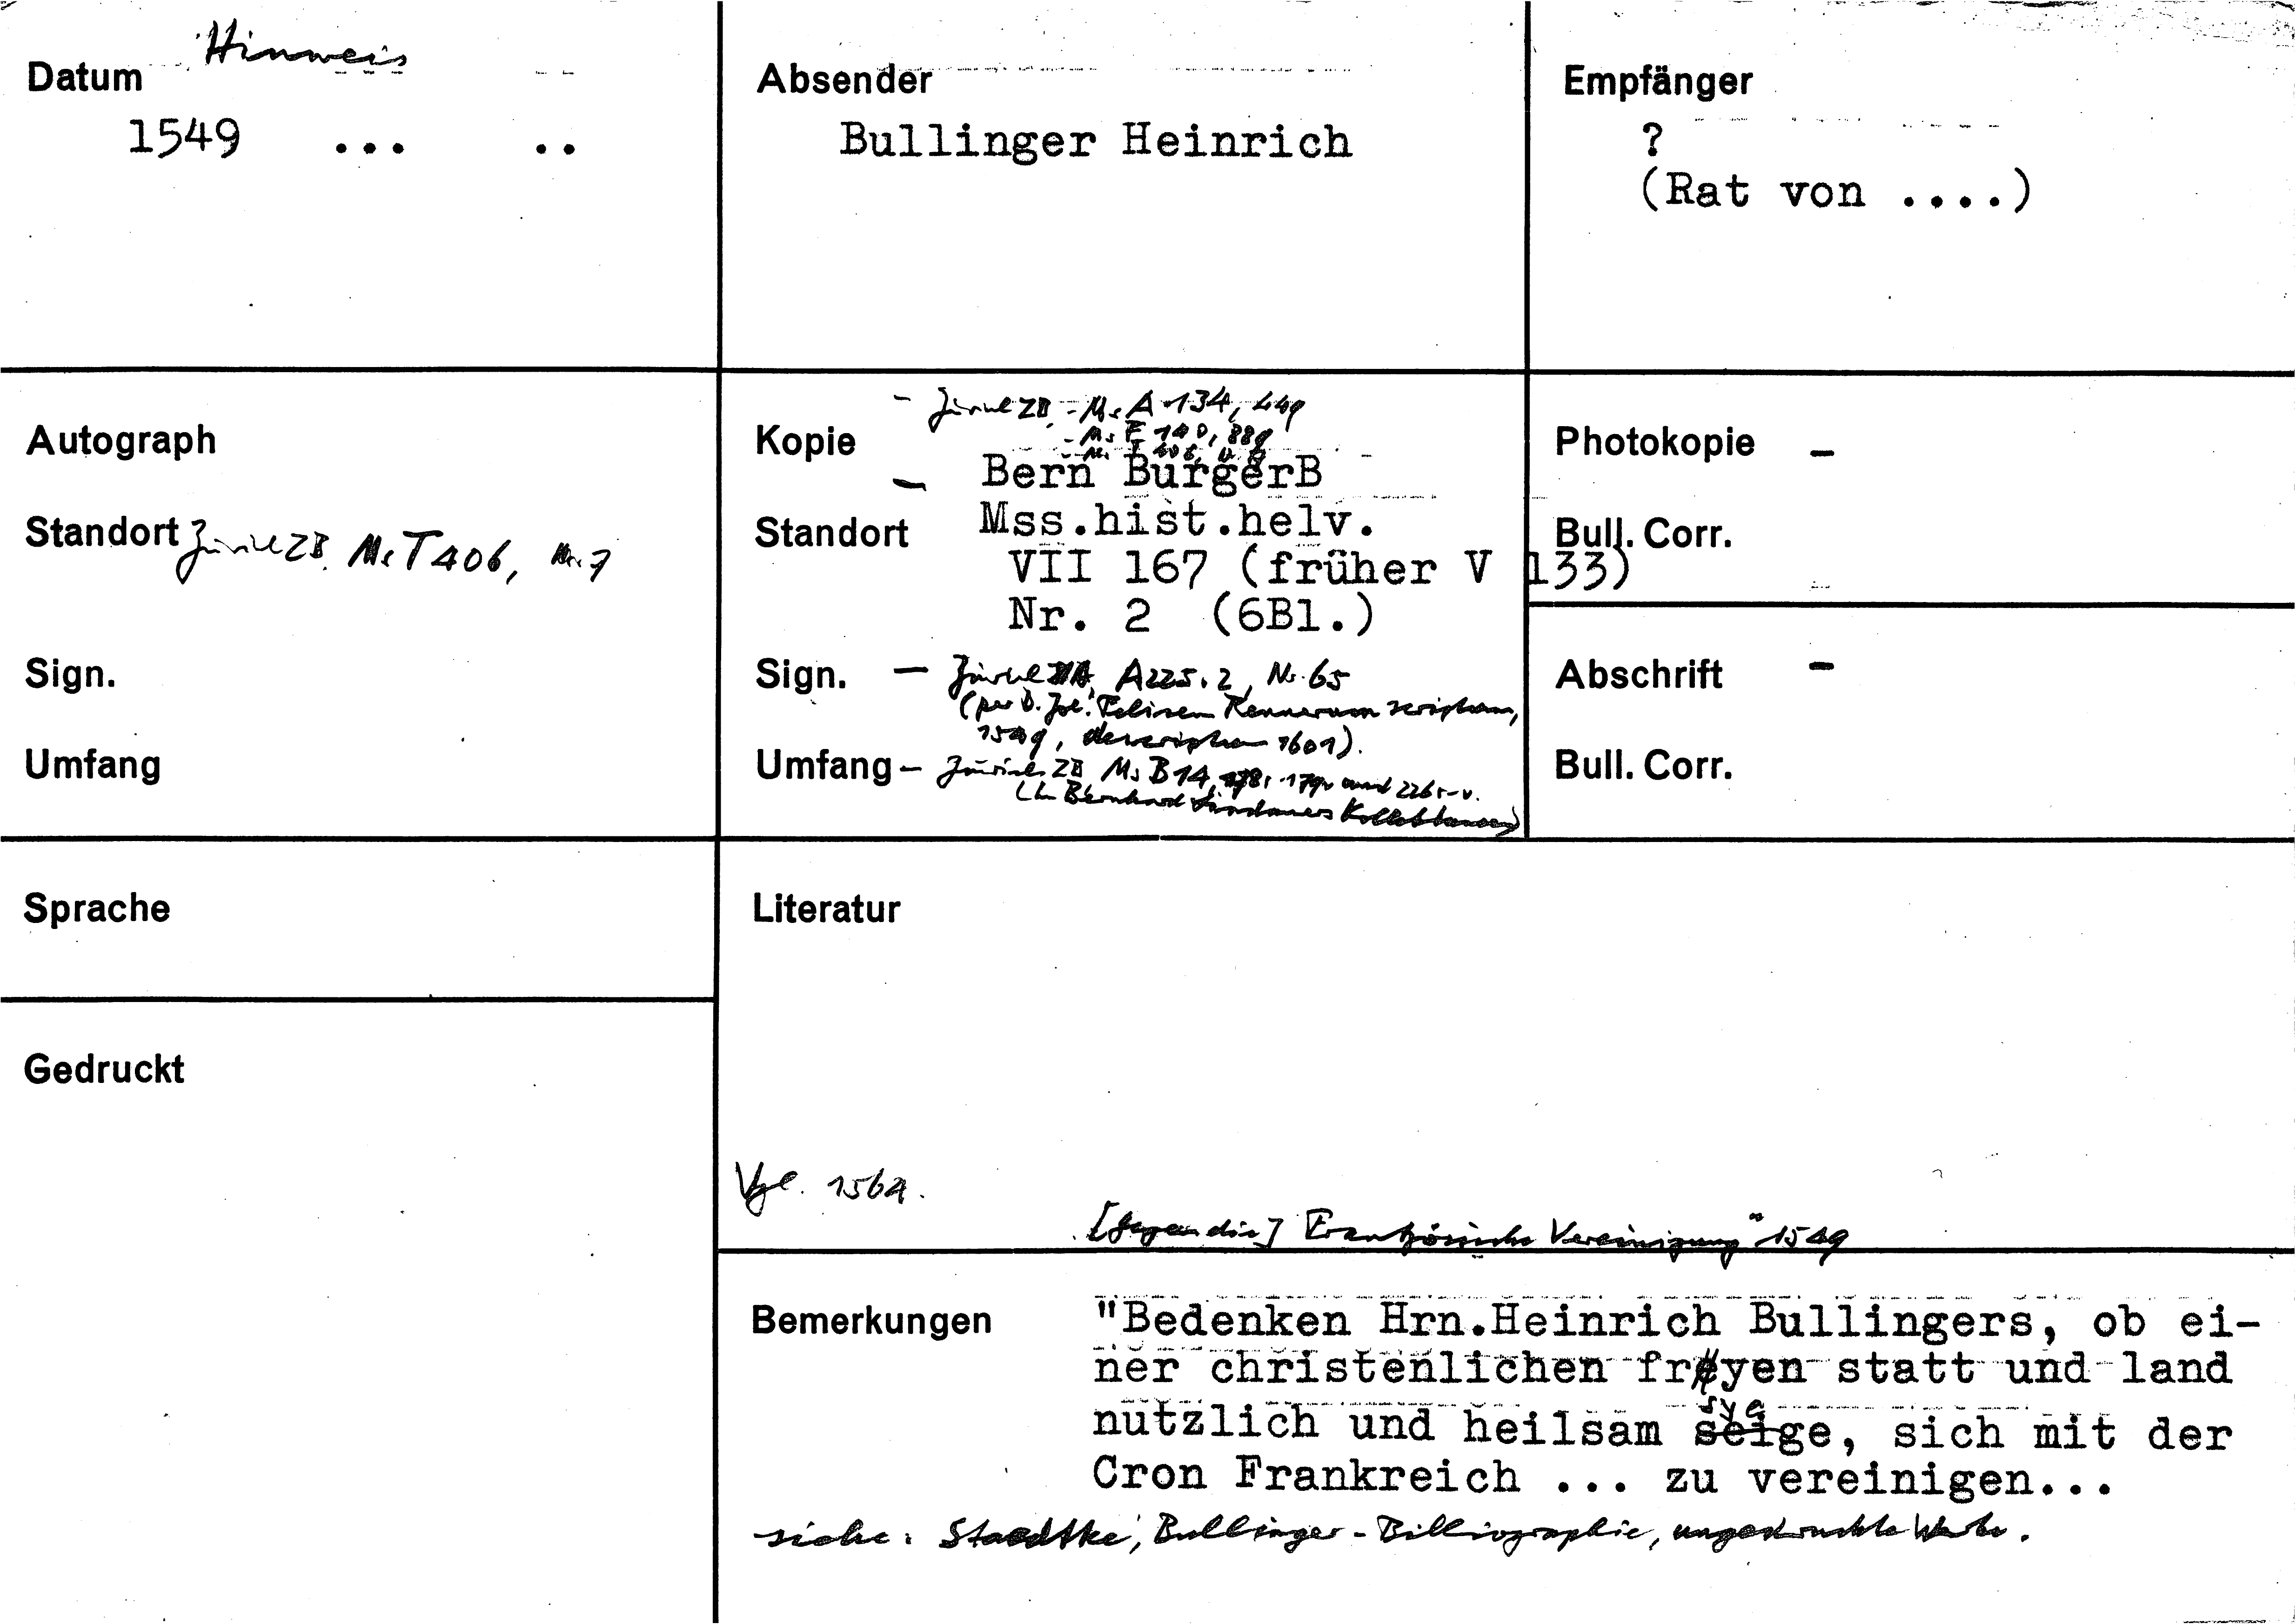 Hinweis
Datum
1549 ... ..
Absender
Bullinger Heinrich
Empfänger
?
(Rat von ....)
Autograph
Standort Zürich ZB, Ms T 406, Nr. 7
Sign.
Umfang
Kopie
- Zürich ZB - Ms A 134, 449
- Ms E 140, 889
- Bern BurgerB
Standort Mss.hist.helv.
VII 167 (früher V 133)
Nr. 2 (6Bl.)
Sign. - Zürich A 225.2, Nr. 65
(per D. Joh. Rennerum scriptum,
1549, descriptum 1601).
Umfang - Zürich ZB Ms B 14, 179v und 226r-v.
(In Bernhard Lindauers Kollektaneen)
Photokopie -
Bull. Corr.
Abschrift -
Bull. Corr.
Sprache
Literatur
Gedruckt
Vgl. 1564.
[Gegen die] Frantzösische Vereinigung" 1549
Bemerkungen "Bedenken Hrn.Heinrich Bullingers, ob ei-
ner christenlichen fryen statt und land
nutzlich und heilsam syge, sich mit der
Cron Frankreich ... zu vereinigen...
siehe: Staedtke, Bullinger-Bibliographie, ungedruckte Werke.